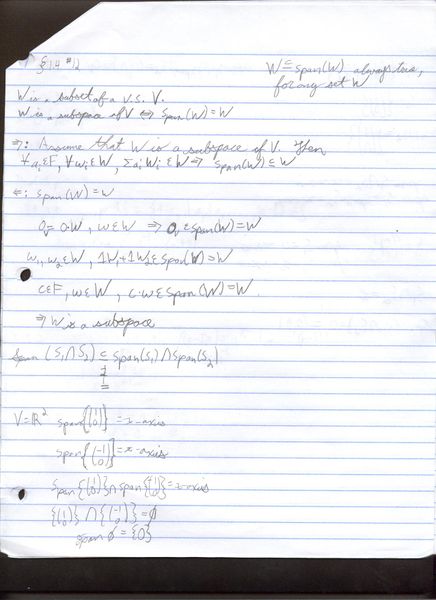 §1.4 #12
W ⊆ span(W) always true,
for any set W
W is a subset of a V.S. V.
W is a subspace of V ⇔ span(W) = W
⇒: Assume that W is a subspace of V. Then
∀ aᵢ∈F, ∀ wᵢ∈W, Σaᵢwᵢ ∈ W ⇒ span(W) ⊆ W
⇐: span(W) = W
0ᵥ = 0·W, w∈W ⇒ 0ᵥ ∈ span(W) = W
w₁, w₂ ∈ W, 1W₁ + 1W₂ ∈ span(W) = W
c∈F, w∈W, c·w ∈ span(W) = W.
⇒ W is a subspace
Span (S₁ ∩ S₂) ⊆ span(S₁) ∩ span(S₂)
V = ℝ² span{(1 0)} = x-axis
span{(-1 0)} = x-axis
span{(1 0)} ∩ span{(-1 0)} = x-axis
{(1 0)} ∩ {(-1 0)} = ∅
span ∅ = {0}